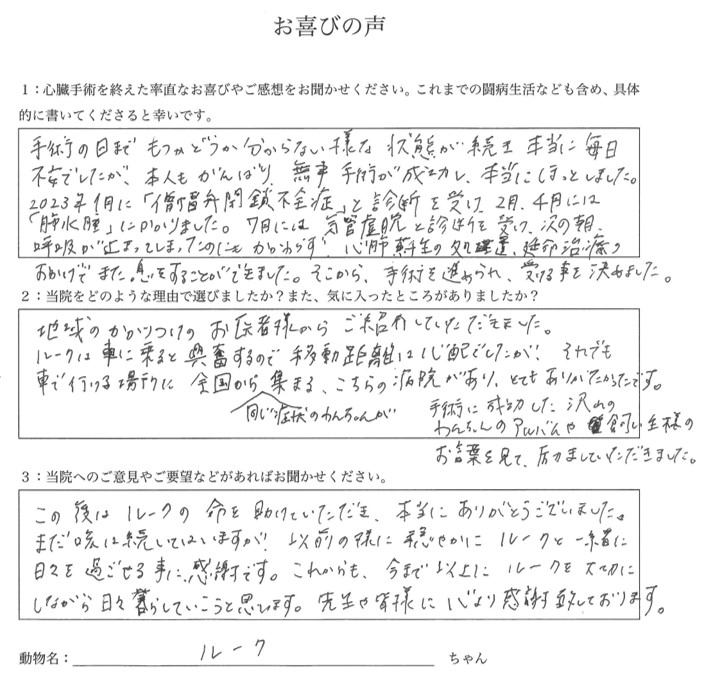 お喜びの声
1：心臓手術を終えた率直なお喜びやご感想をお聞かせください。これまでの闘病生活なども含め、具体
的に書いてくださると幸いです。
手術の日まで もつかどうか分からない様な 状態が続き 本当に毎日
不安でしたが、本人もがんばり、無事 手術が成功し、本当にほっとしました。
2023年1月に「僧帽弁閉鎖不全症」と診断を受け、2月、4月には
「肺水腫」にかかりました。7月には 気管虚脱と診断を受け、次の朝、
呼吸が止まってしまったのにもかかわらず、心肺蘇生の処置、延命治療の
おかげで また息をすることができました。そこから、手術を進められ、受ける事を決めました。
2：当院をどのような理由で選びましたか？また、気に入ったところがありましたか？
地域のかかりつけの お医者様から ご紹介していただきました。
ルークは車に乗ると興奮するので 移動距離は心配でしたが、それでも
車で行ける場所に 全国から 集まる、こちらの病院があり、とてもありがたかったです。
同じ症状のわんちゃんが
手術に成功した 沢山の
わんちゃんの アルバムや 飼い主様の
お言葉を見て、励ましていただきました。
3：当院へのご意見やご要望などがあればお聞かせください。
この度は ルークの 命を助けていただき、本当に ありがとうございました。
まだ咳は続いてはいますが、以前の様に 穏やかに ルークと一緒に
日々を過ごせる事に、感謝です。これからも、今まで以上に ルークを 大切に
しながら 日々 暮らしていこうと思います。先生や皆様に 心より感謝致しております。
動物名： ルーク ちゃん